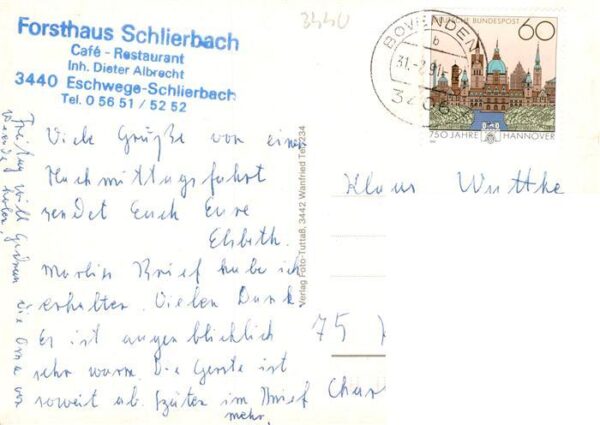 Forsthaus Schlierbach
Café - Restaurant
Inh. Dieter Albrecht
3440 Eschwege-Schlierbach
Tel. 0 56 51 / 52 52
3440
BOVENDEN
b
31.-7.91
DEUTSCHE BUNDESPOST
60
750 JAHRE HANNOVER
Viele Grüße von einer
Nachmittagsfahrt
sendet Euch Eure
Elsbeth.
Marlies Brief habe ich
erhalten. Vielen Dank.
Es ist augenblicklich
sehr warm. Die Gerste ist
soweit ab. Später im Brief
mehr.
Freitag will
die Oma
Verlag Foto-Tuttaß, 3442 Wanfried Tel. 234
Klaus Wuttke
75
Char